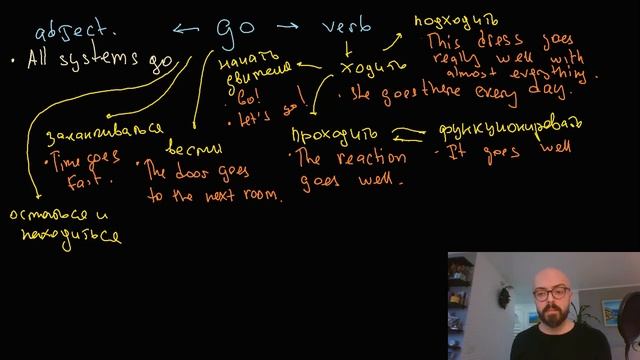 adject. ← go → verb
подходить
• All systems go
This dress goes
really well with
almost everything.
начать
двигаться
ходить
• Go!
• Let's go!
• She goes there every day.
Заканчиваться
• Time goes
fast.
вести
• The door goes
to the next room.
проходить
• The reaction
goes well.
функционировать
• It goes well
остаться и
находиться